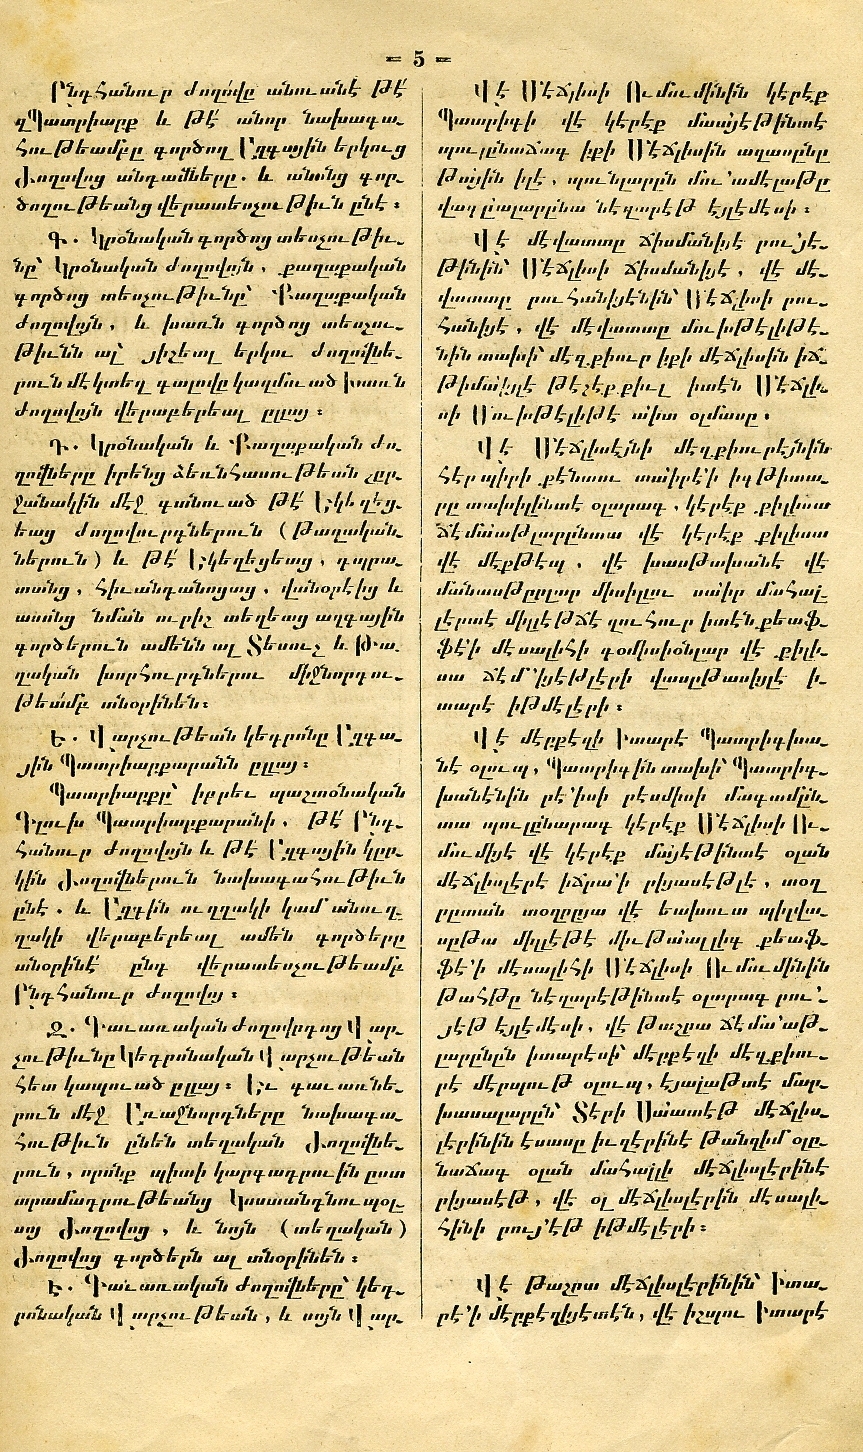 = 5 =
Ընդհանուր ժողովը անուանէ թէ՛
զՊատրիարք և թէ՛ անոր նախագա֊
հութեամբը գործող Ազգային երկուց
Ժողովոց անդամները. և անոնց գոր֊
ծողութեանց վերատեսչութիւն ընէ ։
Գ. Կրօնական գործոց տեսչութիւ֊
նը՝ Կրօնական ժողովոյն, քաղաքական
գործոց տեսչութիւնը՝ Քաղաքական
ժողովոյն, և խառն գործոց տեսչու֊
թիւնն ալ՝ յիշեալ երկու ժողովնե֊
րուն մէկտեղ գալովը կազմուած խառն
ժողովոյն վերաբերեալ ըլլայ ։
Դ. Կրօնական և Քաղաքական ժո֊
ղովները իրենց ձեռնհասութեան շըր֊
ջանակին մէջ գտնուած թէ՛ Եկեղեց֊
եաց ժողովուրդներուն (Թաղական֊
ներուն) և թէ՛ Եկեղեցեաց, դպրա֊
տանց, հիւանդանոցաց, վանօրէից և
ասոնց նման ուրիշ տեղեաց ազգային
գործերուն ամենն ալ Տեսուչ և Թա֊
ղական խորհուրդներու միջնորդու֊
թեամբ տնօրինեն։
Ե. Վարչութեան կեդրոնը Ազգա֊
յին Պատրիարքարանն ըլլայ ։
Պատրիարքը՝ իբրեւ պաշտօնական
Գլուխ Պատրիարքարանի, թէ՛ Ընդ֊
հանուր ժողովոյն և թէ՛ Ազգային կըր֊
կին Ժողովներուն նախագահութիւն
ընէ. և Ազգին ուղղակի կամ անուղ֊
ղակի վերաբերեալ ամեն գործերը
տնօրինէ ընդ վերատեսչութեամբ
Ընդհանուր ժողովոյ ։
Զ. Գաւառական ժողովրդոց Վար֊
չութիւնը Կեդրոնական Վարչութեան
հետ կապուած ըլլայ ։ Եւ գաւառնե֊
րուն մէջ Առաջնորդները նախագա֊
հութիւն ընեն տեղական Ժողովնե֊
րուն, որոնք պիտի կարգադրուին ըստ
տրամադրութեանց Կոստանդնուպօլ֊
սոյ Ժողովոց, և նոյն (տեղական)
Ժողովոց գործերն ալ տնօրինեն ։
Է. Գաւառական ժողովները՝ կեդ֊
րոնական Վարչութեան, և սոյն Վար֊
Վէ Մէճլիսի Ումումինին կէրէք
Պատրիգի վէ կէրէք մաայէթինտէ
պուլընաճագ իքի Մէճլիսին աղասընը
թային իլէ, պունլարըն մու՛ամէլաթը
վազըալարընա նէզարէթ էյլէմէսի ։
Վէ մէվատտը ճիսմանիյէ րու՛յէ֊
թինին՝ Մէճլիսի ճիսմանիյէ, վէ մէ֊
վատտը րուհանիյէնին՝ Մէճլիսի րու֊
հանիյէ, վէ մէվատտը մուխթէլիթէ֊
նին տախի՝ մէզքիուր իքի մէճլիսին իճ֊
թիմաիյլէ թէշէքքիւլ իտէն Մէճլի֊
սի Մուխթէլիթէ աիտ օլմասը ։
Վէ Մէճլիսէյնի մէզքիուրէյնին
հէր պիրի քէնտու տաիրէ՛ի իգթիտա֊
րը տախիլինտէ օլարագ, կէրէք քիլիսա
ճէմաաթլարընտա վէ կէրէք քիլիսա
վէ մէքթէպ, վէ խասթախանէ վէ
մանասթըրլար միսիլլու սաիր մահալ֊
լէրտէ միլլէթճէ զուհուր իտէն քեաֆ֊
ֆէ՛ի մէսալիհի գօմիսիօնլար վէ քիլի֊
սա ճէմ՛իյէթլէրի վասըթասիյլէ ի֊
տարէ իթմէլէրի ։
Վէ մէրքէզի իտարէ Պատրիգխա֊
նէ օլուպ, Պատրիգին տախի՝ Պատրիգ֊
խանէնին րէ՛իսի րէսմիսի մագամըն֊
տա պուլընարագ կէրէք Մէճլիսի Ու֊
մումիյէ վէ կէրէք մայէթինտէ օլան
մէճլիսլէրէ իճրա՛ի րիյասէթլէ, տօղ֊
րըտան տօղըրըյա վէ եախուտ պիլվա֊
սըթա միլլէթէ միւթաալլիգ քեաֆ֊
ֆէ՛ի մէսալիհի Մէճլիսի Ումումինին
թահթը նէզարէթինտէ օլարագ րու՛֊
յէթ էյլէմէսի, վէ թաշրա ճէմա՛աթ֊
լարընըն իտարէսի՝ մէրքէզի մէզքիու֊
րէ մէրպութ օլուպ, էյալաթտէ մար֊
խասալարըն՝ Տէրի Սաատէթ մէճլիս֊
լէրինին էսասը իւզէրինէ թանզիմ օլը֊
նաճագ օլան մահալլի մէճլիսլէրինէ
րիյասէթ, վէ օլ մէճլիսլէրին մէսալի֊
հինի րույ՛էթ իթմէլէրի ։
Վէ թաշրա մէճլիսլէրինին՝ իտա֊
րէ՛ի մէրքէզիյէտէն, վէ իշպու իտարէ